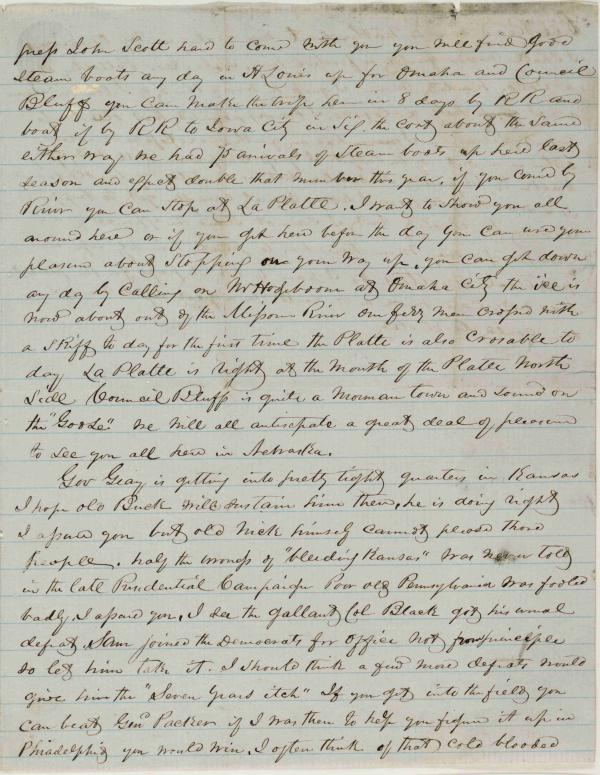 press John Scott hard to come with you you will find good
Steam boats any day in St Louis up for Omaha and Council
Bluff you can make the trip here in 8 days by RR and
boat if by RR to Iowa City in Six the cost about the same
either way we had 75 arivals of Steam boats up here last
season and expect double that number this year, if you come by
River you can stop at La Platte. I want to show you all
around here or if you get here before the day you can use your
pleasure about stopping on your way up, you can get down
any day by calling on Mr Hogeboom at Omaha City the ice is
now about out of the Missouri River our ferry man crossed with
a skiff to day for the first time the Platte is also Crosable to
day La Platte is right at the Mouth of the Platte North
Side Council Bluff is quite a Morman town and sound on
the "Goose" We will all anticipate a great deal of pleasure
to see you all here in Nebraska.
Gov Geary is getting into pretty tight quarters in Kansas
I hope old Buck will sustain him then, he is doing right
I assure you but old Nick himself cannot please those
people. half the wrongs of "bleeding Kansas" was never told
in the late Presidential Campaign Poor old Pennsylvania was fooled
badly I assure you, I see the gallant Col Black got his usual
defeat, Sam joined the Democrats for office not from principle
so let him take it. I should think a few more defeats would
give him the "Seven Years itch" If you get into the field you
can beat Genl Packer if I was there to help you figure it up in
Philadelphia you would win, I often think of that cold blooded